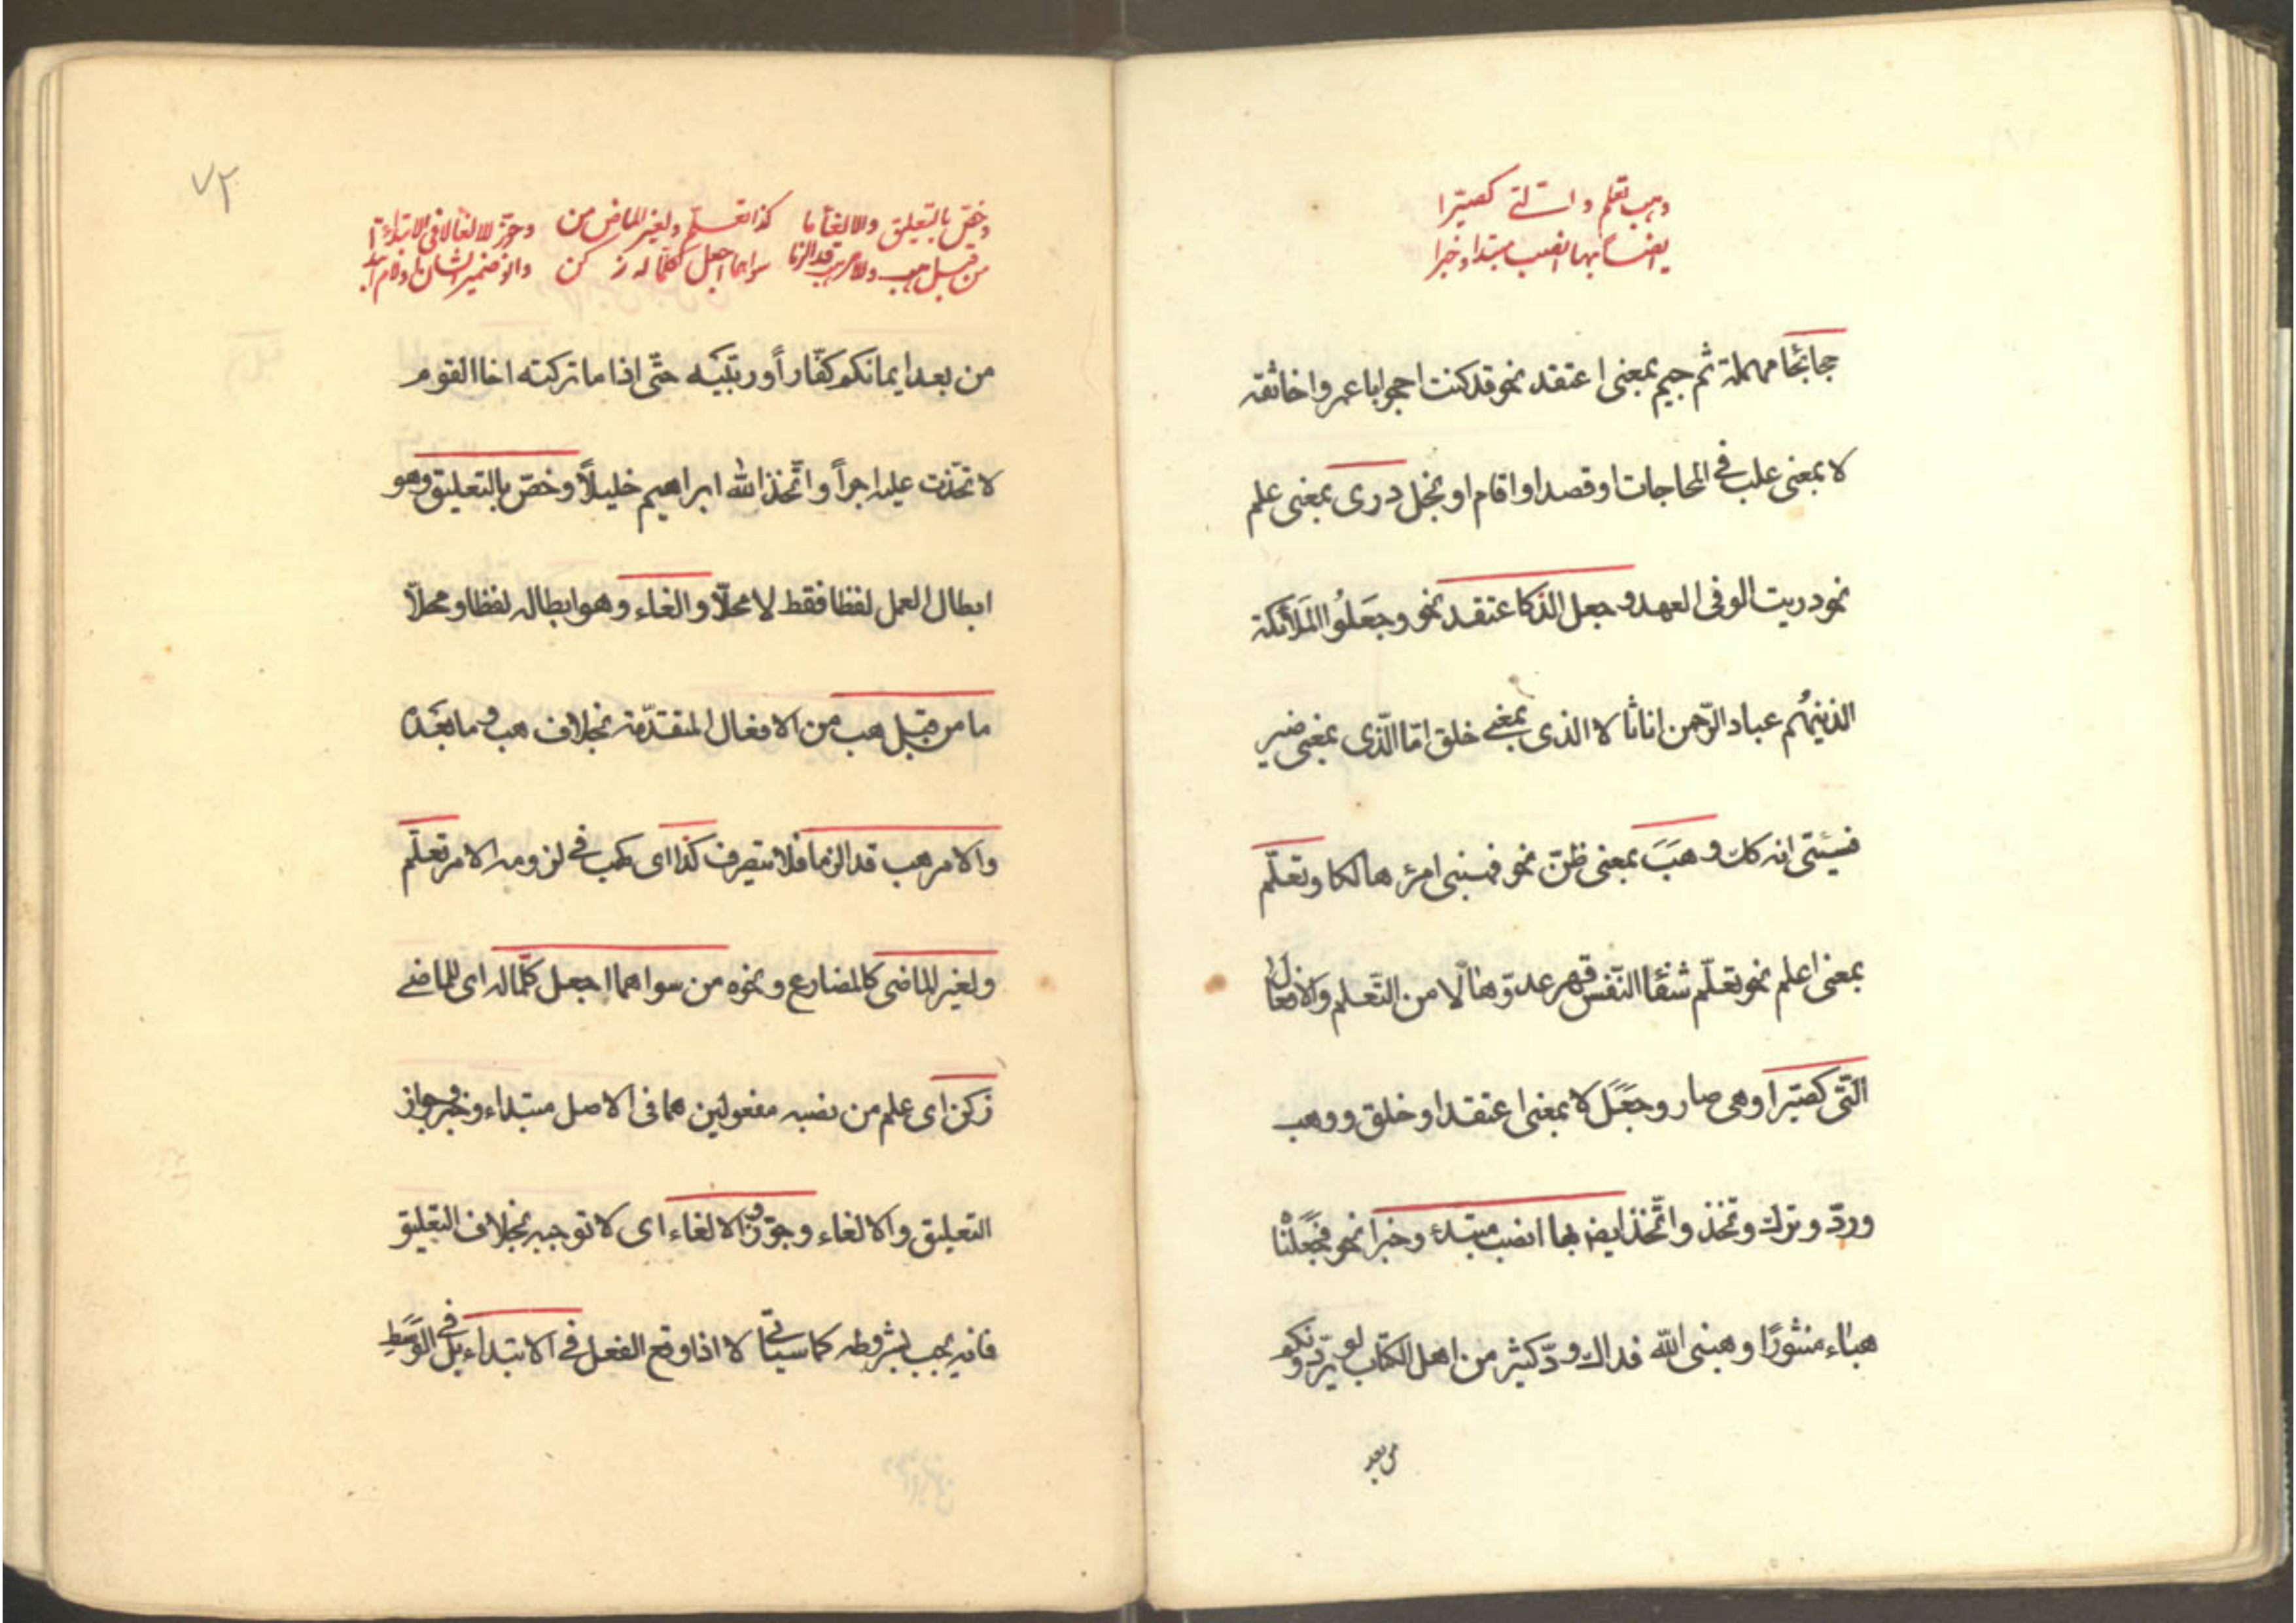 وهب تعلم والتى كصيّرا
ايضا بها انصب مبتدا وخبرا
حجا بحا مهملة ثم جيم بمعنى اعتقد نحو قد كنت احجوا با عمرو اخا ثقة
لا بمعنى غلب فى المحاجات او قصد او اقام او بخل درى بمعنى علم
نحو دريت الوفى العهد و جعل الذ كاعتقد نحو وجَعَلُوا المَلائكة
الذينهُم عباد الرّحمن اناثا لا الذى بمعنى خلق امّا الّذى بمعنى صير
فسيئتى انه كك و هَبَ بمعنى ظنّ نحو فهبنى امرء هالكا وتعلّم
بمعنى اعلم نحو تعلّم شفٓا النّفس قهر عدوّها لا من التّعلم والافعال
الّتى كصيّرا وهى صار وجَعَلَ لا بمعنى اعتقد او خلق ووهب
وردّ وترك وتخذ واتّخذ ايضا بها انصب مبتدء وخبرا نحو فجَعَلْنا
هباء منثورًا وهبنى اللّه فداك ودّ كثير من اهل الكتاب لو يردّونكم
من بعد
٧٢
وخصّ بالتعليق والالغا ما كذا تعلّم ولغير الماض من وجوّز الالغا لا فى الابتدا
من قبل هب والامر هب قد الزما سواهما اجعل كلّما له زكن وانو ضمير الشان او لام ابتدا
من بعد ايمانكم كفّاراً وربّيته حتّى اذا ما تركته اخا القوم
لاتّخذت عليه اجراً واتّخذ اللّه ابراهيم خليلاً وخصّ بالتعليق وهو
ابطال العمل لفظا فقط لا محلّا والغاء وهو ابطاله لفظا ومحلّا
ما من قبل هب من الافعال المتقدّمة بخلاف هب وما بعده
والامر هب قد الزما فلا يتصرف كذا اى كهب فى لزومه الامر تعلّم
ولغير الماضى كالمضارع ونحوه من سواهما اجعل كلّما له اى للماضى
زكن اى علم من نصبه مفعولين هما فى الاصل مبتداء وخبر وجواز
التعليق والالغاء وجوّزوا الالغاء اى لا توجبه بخلاف التعليق
فانه يجب بشروطه كما سياتى لا اذا وقع الفعل فى الابتداء بل فى الوَسَط